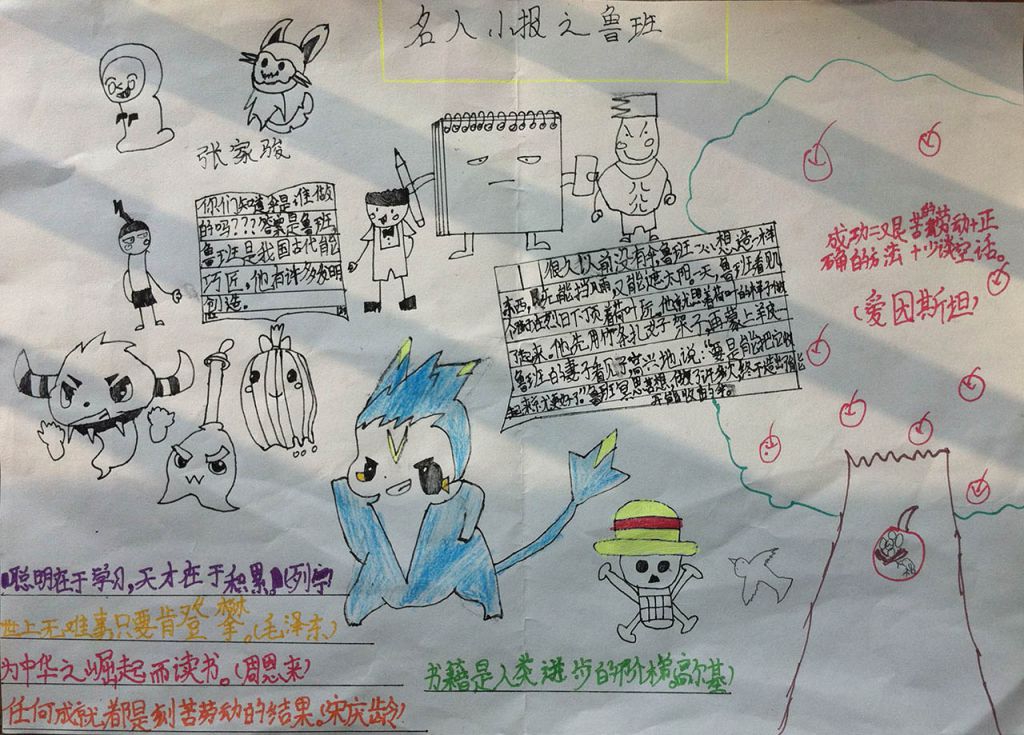 名人小报之鲁班
张家骏
你们知道伞是谁做
的吗???答案是鲁班,
鲁班是我国古代能
巧匠。他有许多发明
创造。
很久以前没有伞,鲁班心想:造一样
东西,既能挡风雨又能遮太阳。一天,鲁班看见
在烈日下顶着荷叶
起来。他先用竹条扎好架子,再蒙上羊皮
鲁班的妻子看见了高兴地说:"要是能把它收
起来就更好了。"鲁班
成功=艰苦的劳动+正
确的方法+少谈空话。
(爱因斯坦)
聪明在于学习,天才在于积累。(列宁
世上无难事只要肯登攀。(毛泽东)
为中华之崛起而读书。(周恩来)
任何成就都是刻苦劳动的结果。(宋庆龄)
书籍是人类进步的阶梯。高尔基)